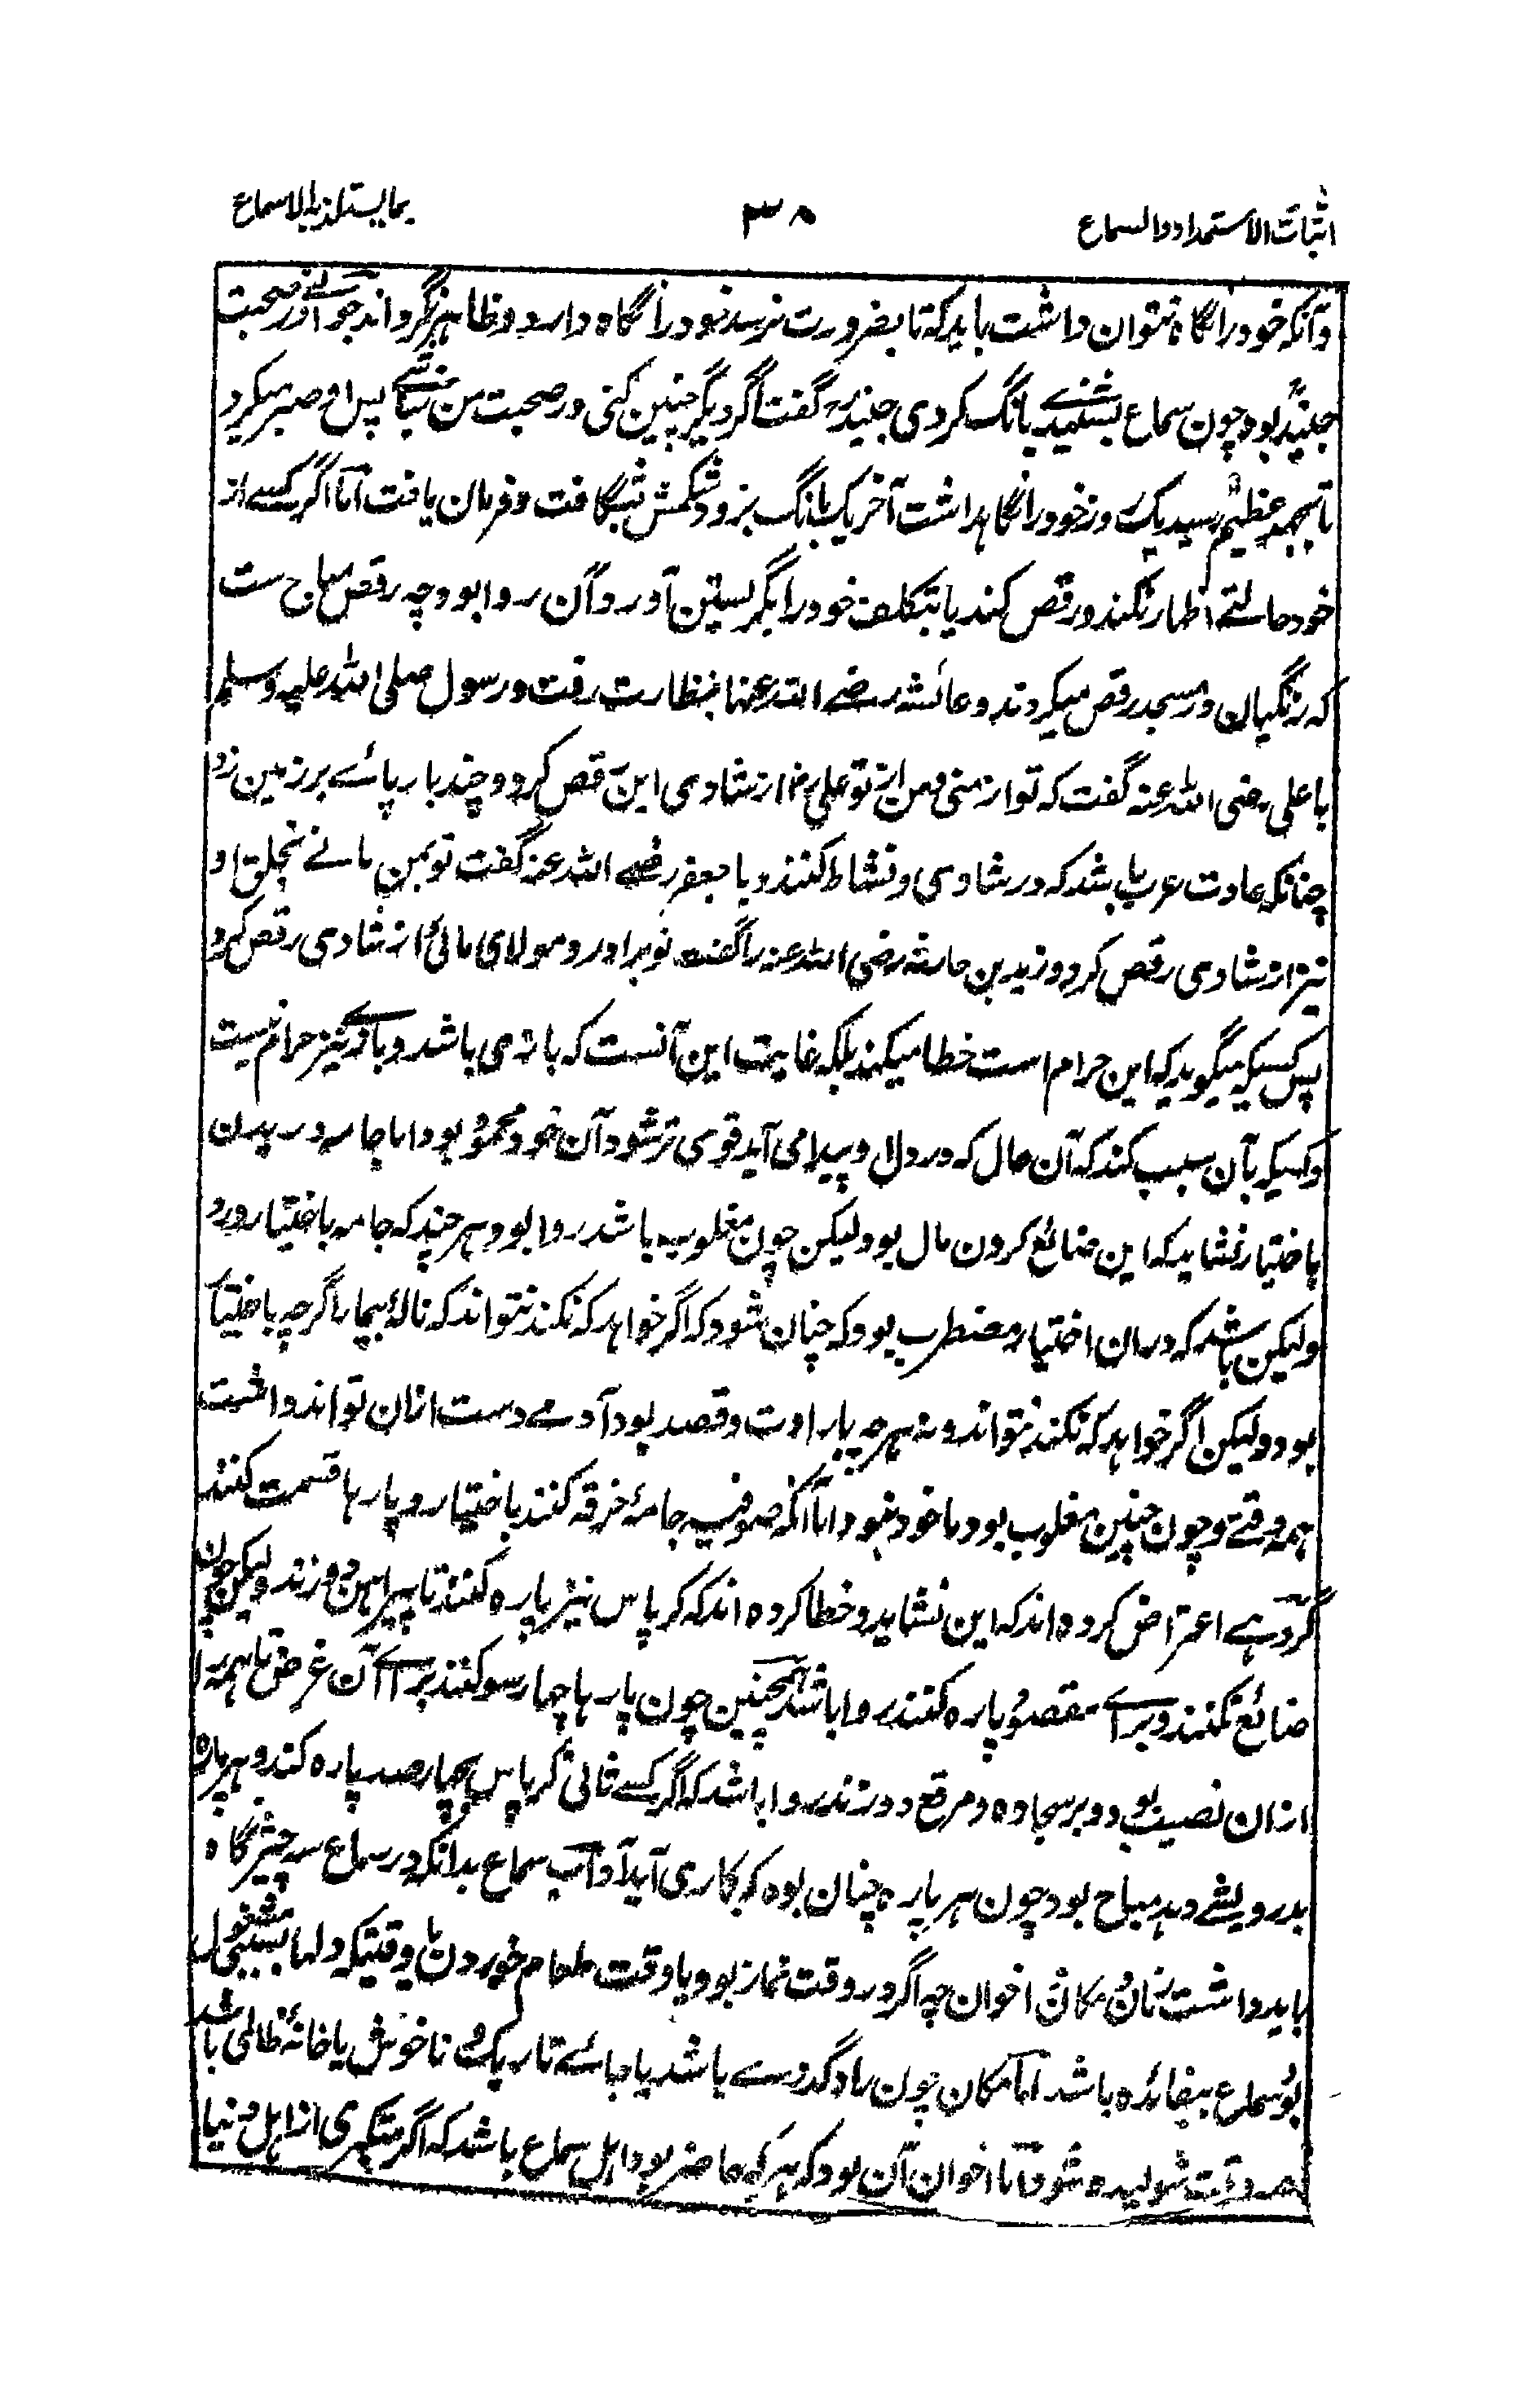 اثبات الاستمداد والسماع ۳۸ بما یستلذ بہ الاسماع
وآنکہ خود را نگاہ نتوان داشت باید کہ تا بضرورت نرسد خود را نگاہ دارد و ظاہر نگرداند جوانے در صحبت
جنیدؒ بود چون سماع بشنیدے بانگ کردی جنیدؒ گفت اگر دیگر چنین کنی در صحبت من نباشے پس او صبر میکرد
تا بجہد عظیم رسید یک روز خود را نگاہداشت آخر یک بانگ بزد و شکمش بشگافت و فرمان یافت اما اگر کسے از
خود حالتے اظہار نکند و رقص کند یا بتکلف خود را بگریستن آورد آن روا بود چہ رقص مباح ست
کہ زنگیان در مسجد رقص میکردند و عائشہ رضے اللہ عنہا بنظارت رفت و رسول صلی اللہ علیہ وسلم
با علی رضی اللہ عنہ گفت کہ تو از منی و من از تو علی رض از شادی این رقص کرد و چند بار پائے بر زمین زد
چنانکہ عادت عرب باشد کہ در شادی و نشاط کنند و با جعفر رضے اللہ عنہ گفت تو بمن مانے بخلق او
نیز از شادی رقص کرد و زید بن حارثہ رضی اللہ عنہ را گفت تو برادر و مولای مائی از شادی رقص کرد
پس کسیکہ میگوید کہ این حرام است خطا میکند بلکہ غایت این آنست کہ بازی باشد و بازے نیز حرام نیست
و کسیکہ بآن سبب کند کہ آن حال کہ در دل او پیدا می آید قوی تر شود آن خود محمود بود اما جامہ دریدن
باختیار نشاید کہ این ضائع کردن مال بود لیکن چون مغلوب باشد روا بود ہر چند کہ جامہ باختیار درد
ولیکن باشد کہ دران اختیار مضطرب بود کہ چنان شود کہ اگر خواہد کہ نکند نتواند کہ نالۂ بیمار اگرچہ باختیار
بود ولیکن اگر خواہد کہ نکند نتواند و نہ ہر چہ بارادت و قصد بود آدمے دست ازان تواند داشت
ہمہ وقتے و چون چنین مغلوب بود ماخوذ نبود اما آنکہ صوفیہ جامۂ خرقہ کنند باختیار و پارہا قسمت کنند
گروہے اعتراض کردہ اند کہ این نشاید و خطا کردہ اند کہ کرپاس نیز پارہ کنند تا پیراہن دوزند ولیکن چون
ضائع نکنند و براے مقصود پارہ کنند روا باشد ہمچنین چون پارہا چہار سو کنند براے آن غرض تا ہمہ را
ازان نصیب بود و بر سجادہ و مرقع دوزند روا باشد کہ اگر کسے ثانی کرپاس بچہار صد پارہ کند و ہر پارہ
بدرویشے دہد مباح بود چون ہر پارہ چنان بود کہ بکاری آید آداب سماع بدانکہ در سماع سہ چیز نگاہ
باید داشت زمان و مکان و اخوان چہ اگر در وقت نماز بود یا وقت طعام خوردن یا وقتیکہ دلہا بسببے مشغول
بود سماع بیفائدہ باشد اما مکان چون راہ گذرے باشد یا جائے تاریک و ناخوش یا خانۂ ظالمی باشد
ہمہ وقت شولیدہ شود اما اخوان آن بود کہ ہر کہ حاضر بود اہل سماع باشد کہ اگر متکبری از اہل دنیا